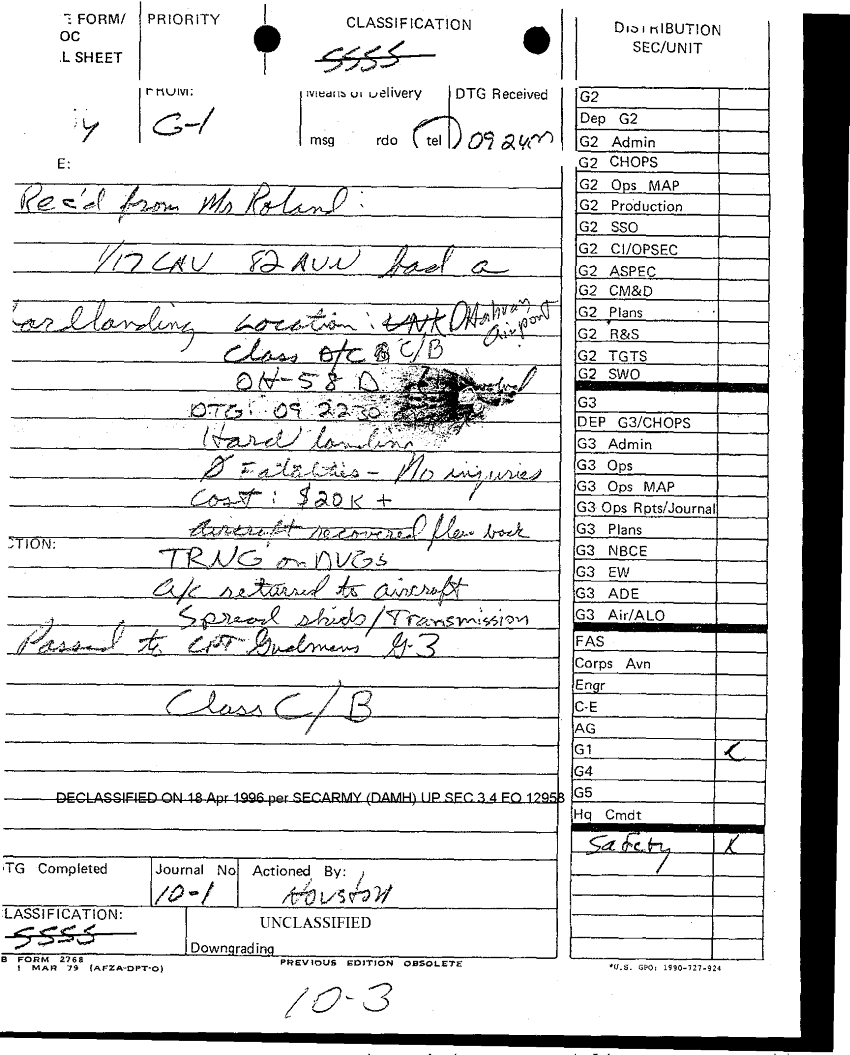 E FORM/ PRIORITY CLASSIFICATION
OC
L SHEET SSSS
FROM: Means of Delivery DTG Received
G-1 msg rdo tel 0924
E:
Rec'd from Mr Roland:
1/17 CAV 82 AVN had a
hard landing Location: UNK airport
Class C/B
OH-58 D
DTG: 09 2230
Hard landing
Ø Fatalities - No injuries
Cost: $20K +
aircraft recovered flew back
CTION:
TRNG on NVGs
a/c returned to aircraft
Spread skids/Transmission
Passed to CPT G-3
Class C/B
DECLASSIFIED ON 18 Apr 1996 per SECARMY (DAMH) UP SEC 3.4 EO 12958
TG Completed Journal No Actioned By:
10-1 HOUSTON
LASSIFICATION: UNCLASSIFIED
SSSS
Downgrading
B FORM 2768
1 MAR 79 (AFZA-DPT-O) PREVIOUS EDITION OBSOLETE
10-3
DISTRIBUTION
SEC/UNIT
G2
Dep G2
G2 Admin
G2 CHOPS
G2 Ops MAP
G2 Production
G2 SSO
G2 CI/OPSEC
G2 ASPEC
G2 CM&D
G2 Plans
G2 R&S
G2 TGTS
G2 SWO
G3
DEP G3/CHOPS
G3 Admin
G3 Ops
G3 Ops MAP
G3 Ops Rpts/Journal
G3 Plans
G3 NBCE
G3 EW
G3 ADE
G3 Air/ALO
FAS
Corps Avn
Engr
C-E
AG
G1
G4
G5
Hq Cmdt
Safety
*U.S. GPO: 1990-727-924